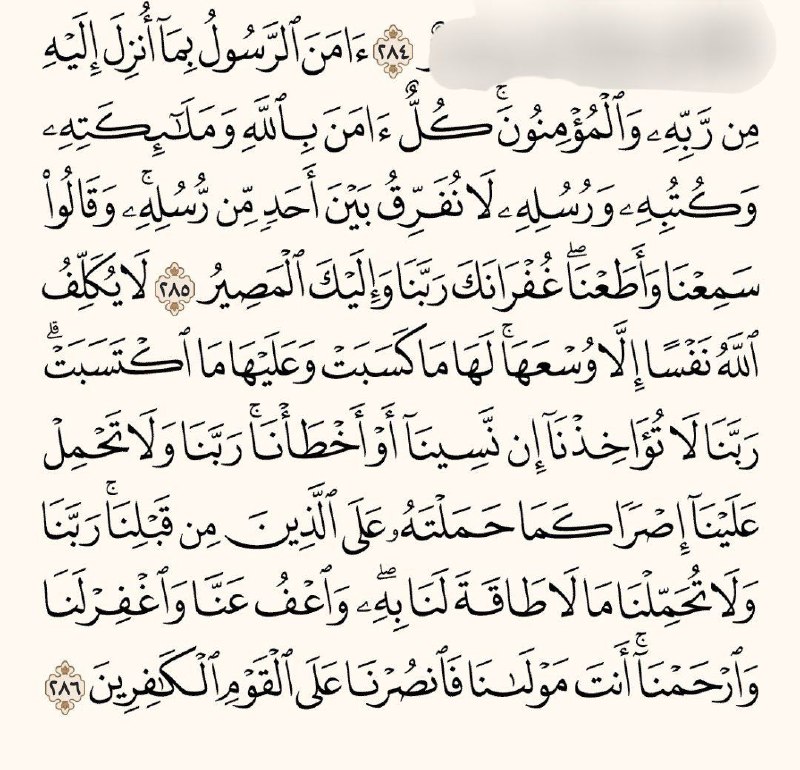 ٢٨٤ ءَامَنَ ٱلرَّسُولُ بِمَآ أُنزِلَ إِلَيْهِ
مِن رَّبِّهِۦ وَٱلْمُؤْمِنُونَۚ كُلٌّ ءَامَنَ بِٱللَّهِ وَمَلَـٰٓئِكَتِهِۦ
وَكُتُبِهِۦ وَرُسُلِهِۦ لَا نُفَرِّقُ بَيْنَ أَحَدٍ مِّن رُّسُلِهِۦۚ وَقَالُوا۟
سَمِعْنَا وَأَطَعْنَاۖ غُفْرَانَكَ رَبَّنَا وَإِلَيْكَ ٱلْمَصِيرُ ٢٨٥ لَا يُكَلِّفُ
ٱللَّهُ نَفْسًا إِلَّا وُسْعَهَاۚ لَهَا مَا كَسَبَتْ وَعَلَيْهَا مَا ٱكْتَسَبَتْۗ
رَبَّنَا لَا تُؤَاخِذْنَآ إِن نَّسِينَآ أَوْ أَخْطَأْنَاۚ رَبَّنَا وَلَا تَحْمِلْ
عَلَيْنَآ إِصْرًا كَمَا حَمَلْتَهُۥ عَلَى ٱلَّذِينَ مِن قَبْلِنَاۚ رَبَّنَا
وَلَا تُحَمِّلْنَا مَا لَا طَاقَةَ لَنَا بِهِۦۖ وَٱعْفُ عَنَّا وَٱغْفِرْ لَنَا
وَٱرْحَمْنَآۚ أَنتَ مَوْلَىٰنَا فَٱنصُرْنَا عَلَى ٱلْقَوْمِ ٱلْكَـٰفِرِينَ ٢٨٦